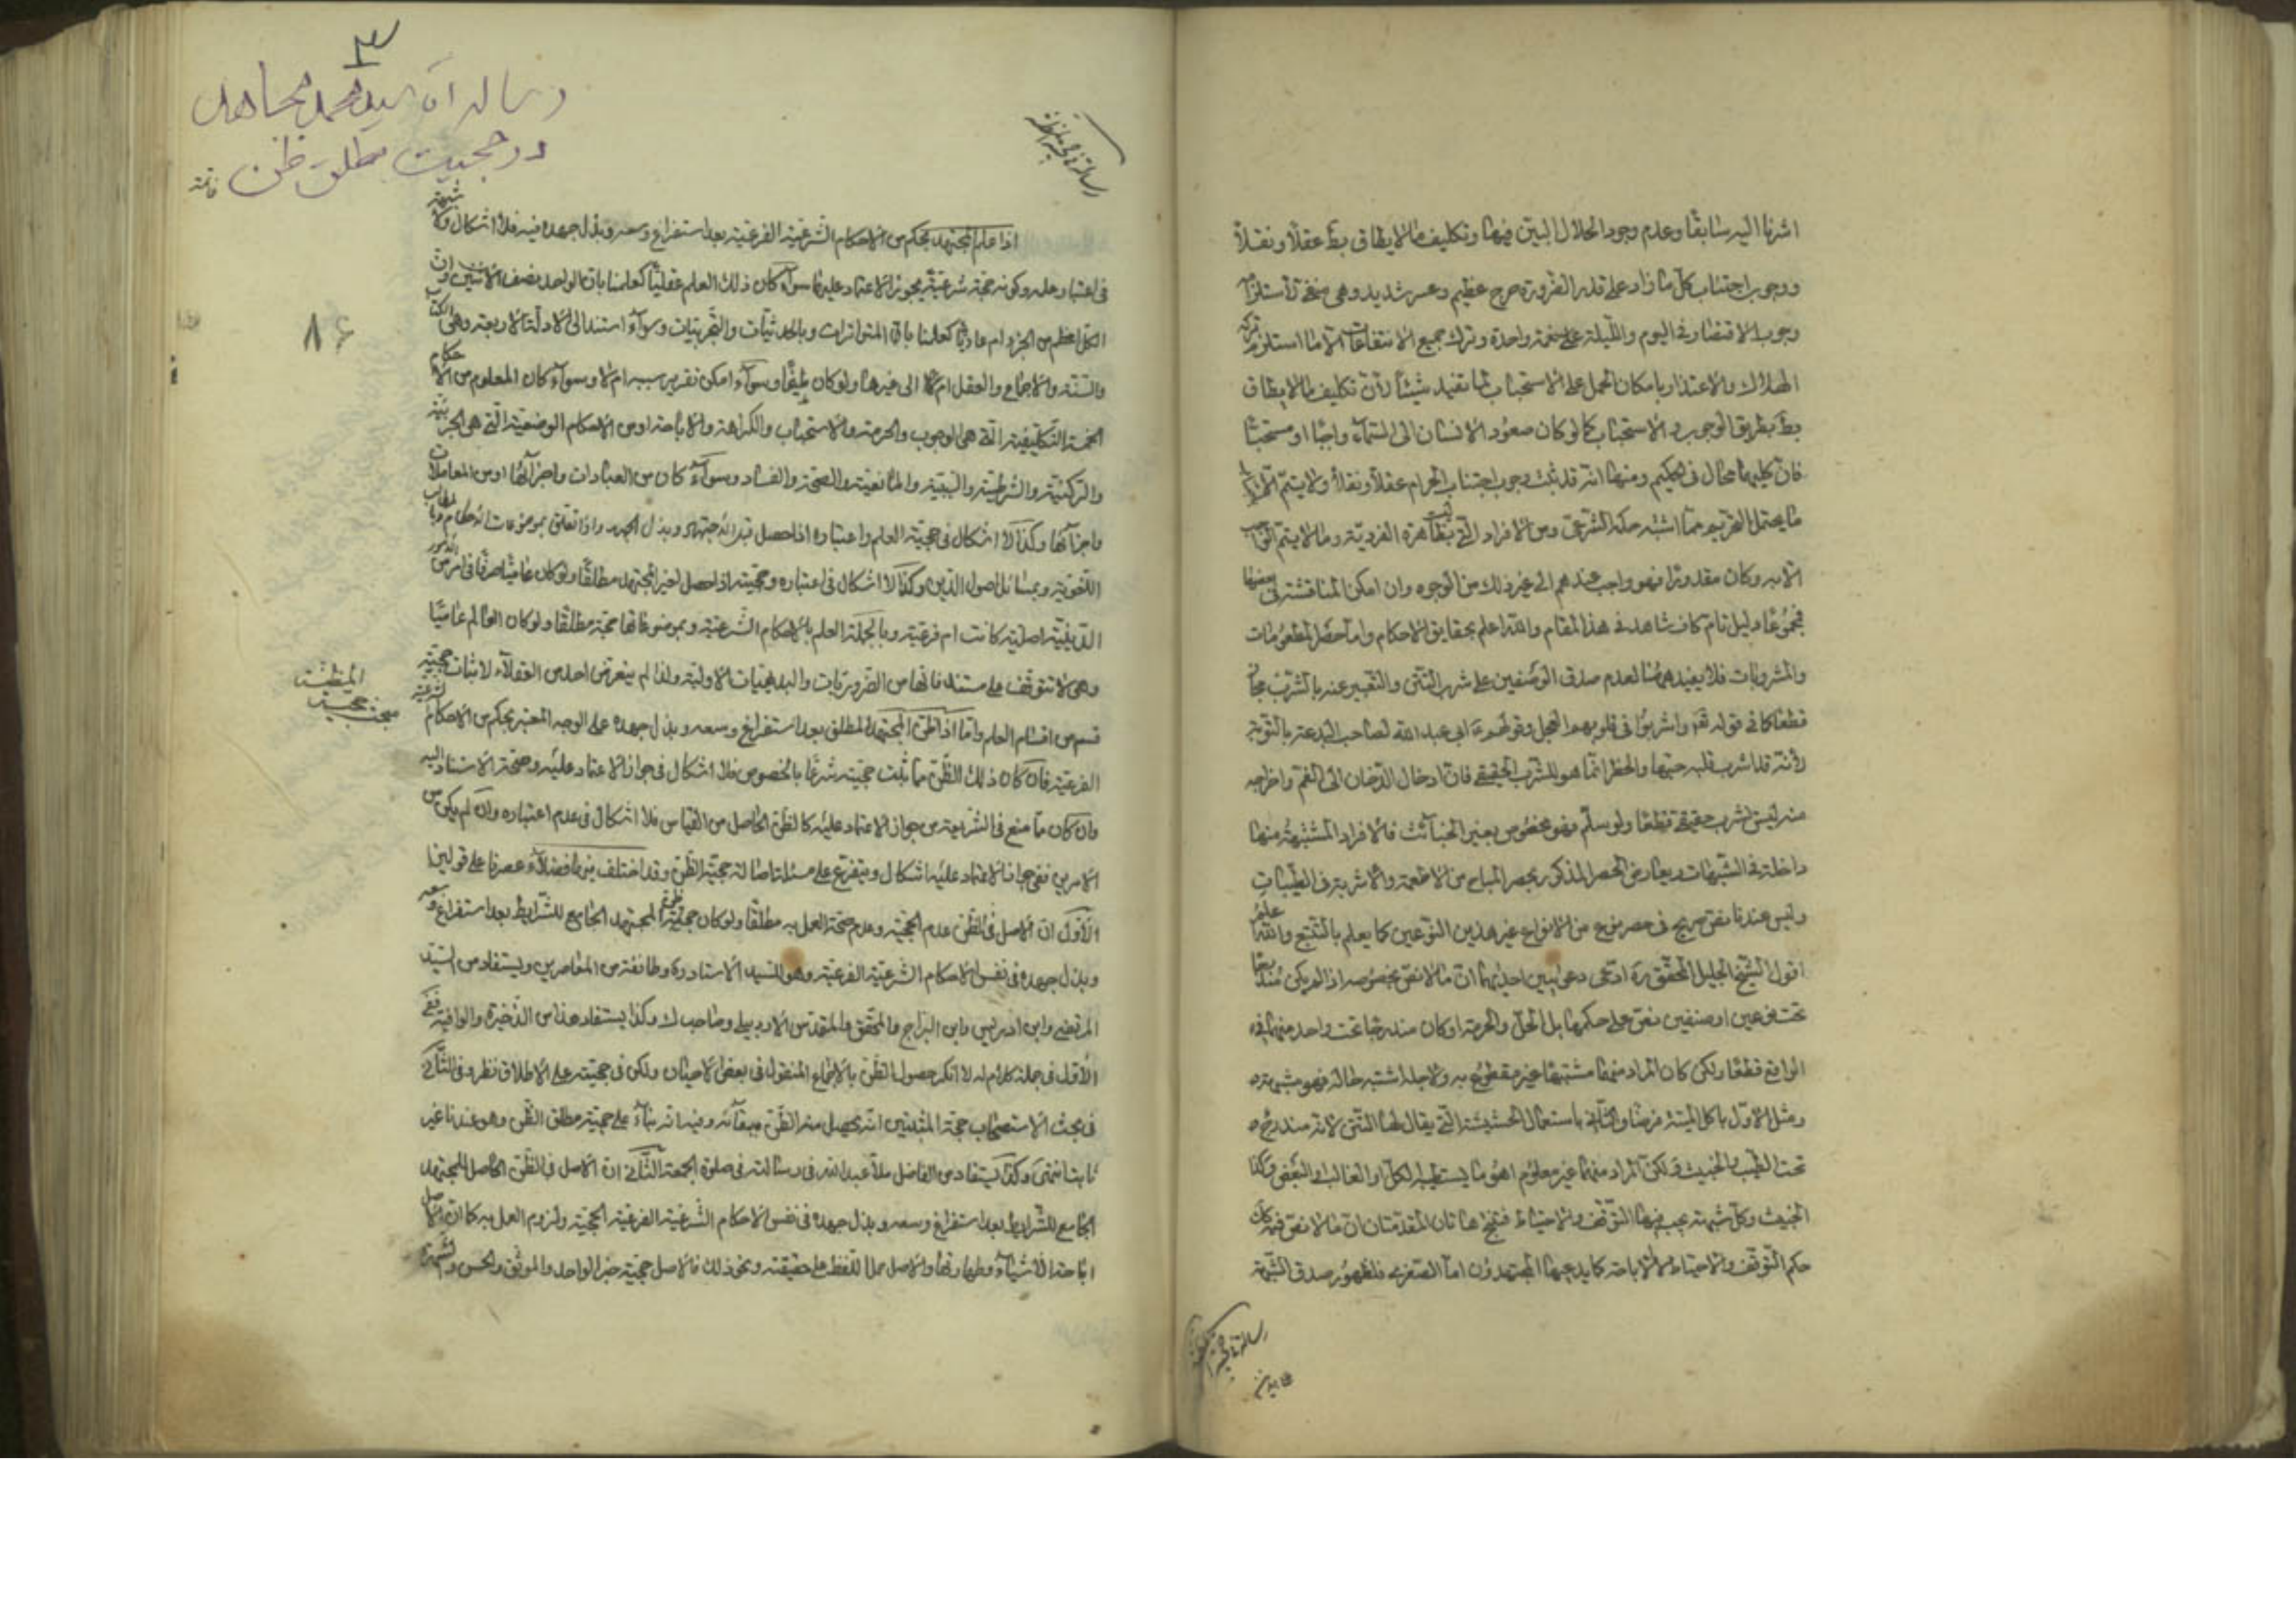 اشرنا اليه سابقا وعدم وجود الحلال البين فيها وتكليف ما لا يطاق بط عقلا ونقلا
ووجوب اجتناب كل ما زاد على قدر الضرورة حرج عظيم وعسر شديد وهي منفي لاستلزام
وجوب الاقتصار في اليوم والليلة على لقمة واحدة وترك جميع الانتفاعات الا ما استلزم تركه
الهلاك والاعتذار بامكان الحمل على الاستحباب لما تفيد شيئا لان تكليف ما لا يطاق
بط بطريق الوجوب والاستحباب كما لو كان صعود الانسان الى السماء واجبا او مستحبا
فان كليهما محال في الحكيم ومنها انه قد ثبت وجوب اجتناب الحرام عقلا ونقلا ولا يتم الا باجتناب
ما يحتمل التحريم مما اشتبه حكمه الشرعي ومن الافراد التي ليست بظاهرة الفردية وما لا يتم الواجب
الا به وكان مقدورا فهو واجب عندهم الى غير ذلك من الوجوه وان امكن المناقشة في بعضها
فمجموعها دليل تام كاف شاهد في هذا المقام والله اعلم بحقايق الاحكام واما حصر المطعومات
والمشروبات فلا يفيد همنا لعدم صدق الوصفين على شرب التتن والتعبير عنه بالشرب مجاز
قطعا كما في قوله تعالى واشربوا في قلوبهم العجل وقولهم ع ابى عبد الله لصاحب البدعة بالتوبة
لانه قد اشرب قلبه حبها والحظر انما هو للشرب الحقيقي فان ادخال الدخان الى الفم واخراجه
منه ليس بشرب حقيقي قطعا ولو سلم فهو مخصوص بغير الخبائث فالافراد المشتبهة منها
داخلة في الشبهات ويعارض الحصر المذكور بحصر المباح من الاطعمة والاشربة في الطيبات
وليس عندنا نص صريح في حصر نوع من الانواع غير هذين النوعين كما يعلم بالتتبع والله اعلم
اقول الشيخ الجليل المحقق ره ادعى دعويين احديهما ان ما لا نص بخصوصه اذا لم يكن مندرجا
تحت نوعين او صنفين نص على حكمهما بل الحل والحرمة او كان مندرجا تحت واحد منهما في
الواقع قطعا ولكن كان المراد منهما مشتبها غير مقطوع به ولاجله اشتبه حاله فهو شبهة
ومثل الاول باكل الميتة فرضا والثاني باستعمال الحشيشة التي يقال لها التتن لانه مندرج
تحت الطيب والخبيث ولكن المراد منهما غير معلوم اهو ما يستطيبه الكل او الغالب او البعض وكذا
الخبيث وكل شبهة يجب فيها التوقف والاحتياط فينتج هاتان المقدمتان ان ما لا نص فيه كان
حكم التوقف والاحتياط لا الاباحة كما يدعيها المجتهدون اما الصغرى فلظهور صدق الشبهة
٣
رساله آقا سيد محمد مجاهد
در حجيت مطلق ظن
٨٦
اذا علم المجتهد بحكم من الاحكام الشرعية الفرعية بعد استفراغ وسعه وبذل جهده فيه فلا اشكال ولا شبهة
في اعتبار علمه وكونه حجة شرعية يجوز الاعتماد عليها سواء كان ذلك العلم عقليا كعلمنا بان الواحد نصف الاثنين وان
الكل اعظم من الجزء ام عاديا كعلمنا بان المتواترات وبالحدثيات والتجربيات وسواء استند الى الادلة الاربعة وهي الكتاب
والسنة والاجماع والعقل ام لا الى غيرها ولو كان طيفا وسواء امكن تقرير سببه ام لا وسواء كان المعلوم من الاحكام
الخمسة التكليفية التي هي الوجوب والحرمة والاستحباب والكراهة والاباحة او من الاحكام الوضعية التي هي الجزئية
والركنية والشرطية والسببية والمانعية والصحة والفساد وسواء كان من العبادات واجزائها او من المعاملات
واجزائها وكذا لا اشكال في حجية العلم واعتباره اذا حصل قبل الاجتهاد وبذل الجهد واذا تعلق بموضوعات الاحكام وبالمطالب
اللغوية وبمسائل اصول الدين وكذا لا اشكال في اعتباره وحجيته اذا حصل لغير المجتهد مطلقا ولو كان عاميا صرفا في امر من الامور
الدينية اصلية كانت ام فرعية وبالجملة العلم بالاحكام الشرعية وبموضوعاتها حجة مطلقا ولو كان العالم عاميا
وهي لا تتوقف على مستند فانها من الضروريات والبديهيات الاولية ولذا لم يتعرض احد من العقلاء لاثبات حجية
قسم من اقسام العلم واما اذا ظن المجتهد المطلق بعد استفراغ وسعه وبذل جهده على الوجه المعتبر بحكم من الاحكام الشرعية
الفرعية فان كان ذلك الظن مما ثبت حجيته شرعا بالخصوص فلا اشكال في جواز الاعتماد عليه وصحة الاستناد اليه
وان كان مما منع في الشريعة من جواز الاعتماد عليه كالظن الحاصل من القياس فلا اشكال في عدم اعتباره وان لم يكن من
الامرين ففي جواز الاعتماد عليه اشكال ويتفرع على مسئلة اصالة حجية الظن وقد اختلف فيها فضلاء عصرنا على قولين
الاول ان الاصل في الظن عدم الحجية وعدم صحة العمل به مطلقا ولو كان حجية ظن المجتهد الجامع للشرايط بعد استفراغ وسعه
وبذل جهده في نفس الاحكام الشرعية الفرعية وهو للسيد الاستاد ره وطائفة من المعاصرين ويستفاد من السيد
المرتضى وابن ادريس وابن البراج والمحقق والمقدس الاردبيلي وصاحب لك وكذا يستفاد هذا من الذخيرة والوافية ففي
الاول في جملة كلام له لا انكر حصول الظن بالاجماع المنقول في بعض الاحيان ولكن في حجيته على الاطلاق نظر وفي الثاني
في بحث الاستصحاب حجة المثبتين انه يحصل منه الظن ببقائه وفيه انه بناء على حجية مطلق الظن وهو عندنا غير
ثابت انتهى وكذا يستفاد من الفاضل ملا عبد الله في رسالته في صلوة الجمعة الثاني ان الاصل في الظن الحاصل للمجتهد
الجامع للشرايط بعد استفراغ وسعه وبذل جهده في نفس الاحكام الشرعية الفرعية الحجية ولزوم العمل به كما ان الاصل
اباحة الاشياء وطهارتها والاصل حمل اللفظ على حقيقته ونحو ذلك فالاصل حجية خبر الواحد والموثق والحسن والشهرة